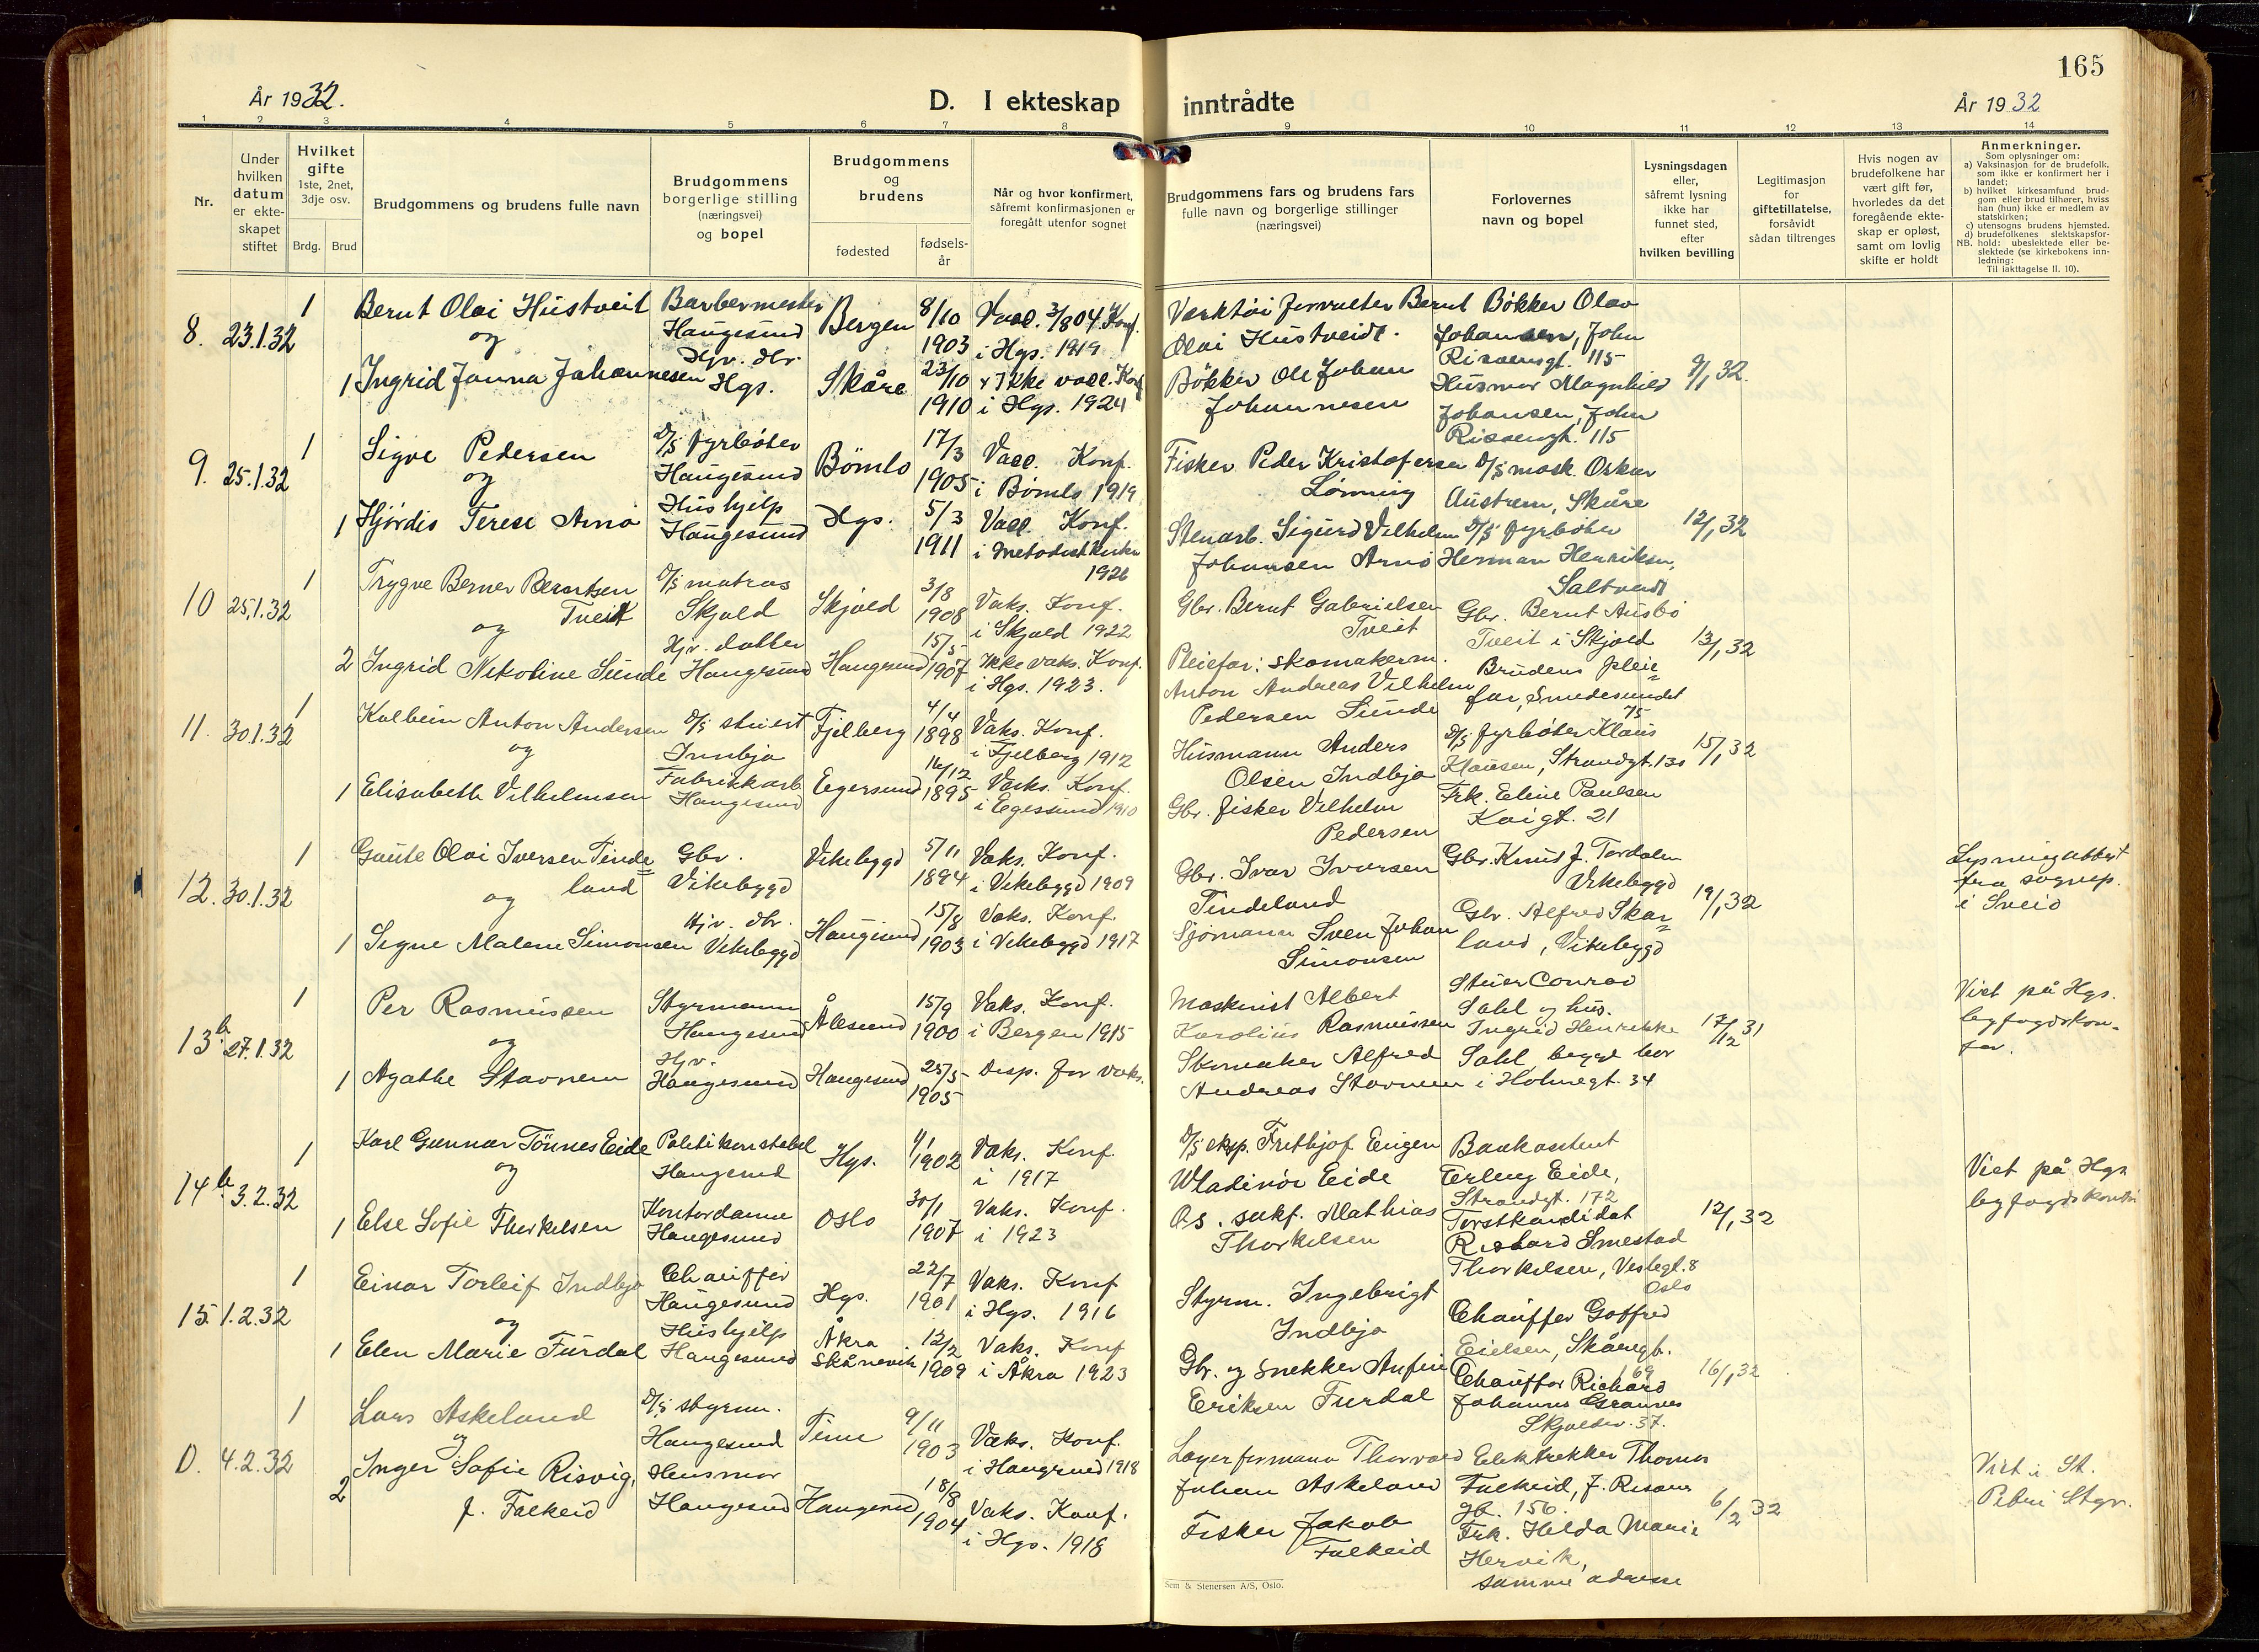 165
År 1932.
D. I ekteskap inntrådte
År 1932
1 2 3 4 5 6 7 8 9 10 11 12 13 14
Nr.
Under hvilken datum er ekteskapet stiftet
Hvilket gifte 1ste, 2net, 3dje osv.
Brdg. Brud
Brudgommens og brudens fulle navn
Brudgommens borgerlige stilling (næringsvei) og bopel
Brudgommens og brudens
fødested
fødsels-år
Når og hvor konfirmert, såfremt konfirmasjonen er foregått utenfor sognet
Brudgommens fars og brudens fars fulle navn og borgerlige stillinger (næringsvei)
Forlovernes navn og bopel
Lysningsdagen eller, såfremt lysning ikke har funnet sted, efter hvilken bevilling
Legitimasjon for giftetillatelse, forsåvidt sådan tiltrenges
Hvis nogen av brudefolkene har vært gift før, hvorledes da det foregående ekteskap er opløst, samt om lovlig skifte er holdt
Anmerkninger.
Som oplysninger om:
a) Vaksinasjon for de brudefolk, som ikke er konfirmert her i landet;
b) hvilket kirkesamfund brudgom eller brud tilhører, hviss han (hun) ikke er medlem av statskirken;
c) utensogns brudens hjemsted.
d) brudefolkenes slektskapsforhold: ubeslektede eller beslektede (se kirkebokens innledning:
NB.
Til iakttagelse II. 10).
8. 23.1.32
1 Bernt Olai Hustveit
Barbermester
Haugesund
Bergen
8/10 1903
Vacc. 3/8 04. Konf.
i Hgs. 1919
Verktøi forvalter Bernt
Olai Hustveidt.
Bøkker Olav
Johansen, John
Risøensgt. 115
og
1 Ingrid Janna Johannesen
Hjv. dtr.
Hgs.
Skåre
23/10 1910
Ikke vacc. Konf
i Hgs. 1924
Bøkker Ole Johan
Johannesen
Husmor Magnhild
Johansen, John
Risøensgt. 115
9/1 32.
9. 25.1.32
1 Sigve Pedersen
D/S fyrbøter
Haugesund
Bömlo
17/3 1905
Vacc. Konf.
i Bømlo 1919
Fisker Peder Kristofersen
Lønning
D/S mask. Oskar
Austrem, Skåre
og
1 Hjørdis Terese Arnø
Hushjelp
Haugesund
Hgs.
5/3 1911
Vacc. Konf.
i Metodistkirken
1926
Stenarb. Sigurd Vilhelm
Johansen Arnø
D/S fyrbøter
Herman Henriksen,
Saltveit
12/1 32
10 25.1.32
1 Trygve Berner Berntsen
Tveit
D/S matros
Skjold
Skjold
3/8 1908
Vaks. Konf.
i Skjold 1922
Gbr. Bernt Gabrielsen
Tveit
Gbr. Bernt Ausbø
Tveit i Skjold
og
2 Ingrid Nikoline Sunde
Hjv. datter
Haugesund
Haugesund
15/5 1907
Ikke vaks. Konf.
i Hgs. 1923.
Pleiefar: skomakerm.
Anton Andreas Vilhelm
Pedersen Sunde
Brudens pleie=
far, Smedesundet
75
13/1 32
11. 30.1.32
1 Kolbein Anton Andersen
D/S stuert
Innbjo
Fjelberg
4/4 1898
Vaks. Konf.
i Fjelberg 1912
Husmann Anders
Olsen Indbjo
D/S fyrbøter Klaus
Klausen, Strandgt. 130
og
1 Elisabeth Vilhelmsen
Fabrikkarb.
Haugesund
Egersund
16/12 1895
Vaks. Konf.
i Egersund 1910
Gbr. fisker Vilhelm
Pedersen
Frk. Eline Paulsen
Kaigt. 21
15/1 32
12. 30.1.32
1 Gaute Olai Iversen Tinde=
land
Gbr.
Vikebygd
Vikebygd
5/11 1894
Vaks. Konf.
i Vikebygd 1909
Gbr. Ivar Iversen
Tindeland
Gbr. Knud J. Tordalen
Vikebygd
og
1 Signe Malene Simonsen
Hjv. dtr.
Vikebygd
Haugesund
15/8 1903
Vaks. Konf.
i Vikebygd 1917
Sjømann Sven Johan
Simonsen
Gbr. Alfred Skar=
land, Vikebygd
19/1 32
Lysningattest
fra sognep.
i Sveio
13b. 27.1.32
1 Per Rasmussen
Styrmann
Haugesund
Ålesund
15/9 1900
Vaks. Konf.
i Bergen 1915
Maskinist Albert
Karolius Rasmussen
Stuer Conrad
Sahl og hus.
Ingrid Henrikke
Sahl begge bor
i Holmegt. 34
og
1 Agathe Stavnem
Hjv.
Haugesund
Haugesund
25/5 1905
Disp. for vaks.
Skomaker Alfred
Andreas Stavnem
17/12 31
Viet på Hgs.
byfogdskon-
tor.
14b. 3.2.32
1 Karl Gunnar Tönnes Eide
Politikonstabel
Haugesund
Hgs.
1/1 1902
Vaks. Konf.
i 1917
D/S eksp. Frithjof Eugen
Wladimir Eide
Bankassistent
Erling Eide,
Strandgt. 172
og
1 Else Sofie Thorkelsen
Kontordame
Haugesund
Oslo
30/1 1907
Vaks. Konf.
i 1923
Mathias
Thorkelsen
Forstkandidat
Richard Smestad
Thorkelsen, Vestgt. 8
Oslo
12/1 32
Viet på Hgs
byfogdskontor
15. 1.2.32
1 Einar Torleif Indbjo
Chauffør
Haugesund
Hgs.
22/7 1901
Vaks. Konf
i Hgs. 1916
Styrm. Ingebrigt
Indbjo
Chauffør Gotfred
Eielsen, Skåregt.
169
og
1 Elen Marie Furdal
Hushjelp
Haugesund
Åkra
Skånevik
12/2 1909
Vaks. Konf
i Åkra 1923
Gbr. og snekker Anfin
Eriksen Furdal
Chauffør Richard
Johannes Grannes
Skjoldav. 37.
16/1 32
D. 4.2.32
1 Lars Askeland
D/S styrm.
Haugesund
Time
9/11 1903
Vaks. Konf.
i Haugesund 1918
Lagerformann Thorvald
Johan Askeland
Elektrikker Thomas
Falkeid, J. Risøens
gt. 156.
og
2 Inger Sofie Risvig,
f. Falkeid
Husmor
Haugesund
Haugesund
18/8 1904
Vaks. Konf.
i Hgs. 1918
Fisker Jakob
Falkeid
Frk. Hilda Marie
Hervik,
samme adresse
6/2 32
Viet i St.
Petri Stgr.
Sem & Stenersen A/S, Oslo.